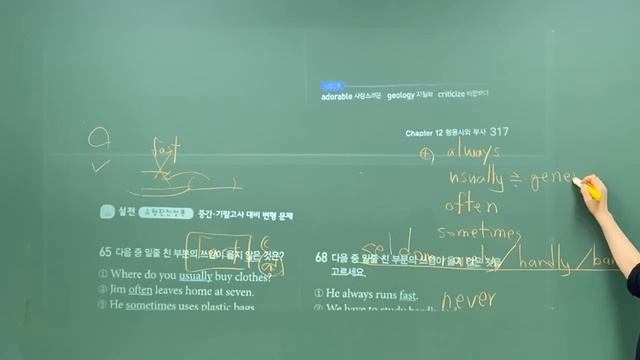 VOCA
adorable 사랑스러운 geology 지질학 criticize 비판하다
Chapter 12 형용사와 부사 317
always
fast
usually ≒ gener
often
sometimes
실전 유형완전정복 중간·기말고사 대비 변형 문제
65 다음 중 밑줄 친 부분의 쓰임이 옳지 않은 것은?
① Where do you usually buy clothes?
② Jim often leaves home at seven.
③ He sometimes uses plastic bags.
seldom / hardly /
68 다음 중 밑줄 친 부분의 쓰임이 옳지 않은 것을
고르세요.
① He always runs fast.
② We have to study
never